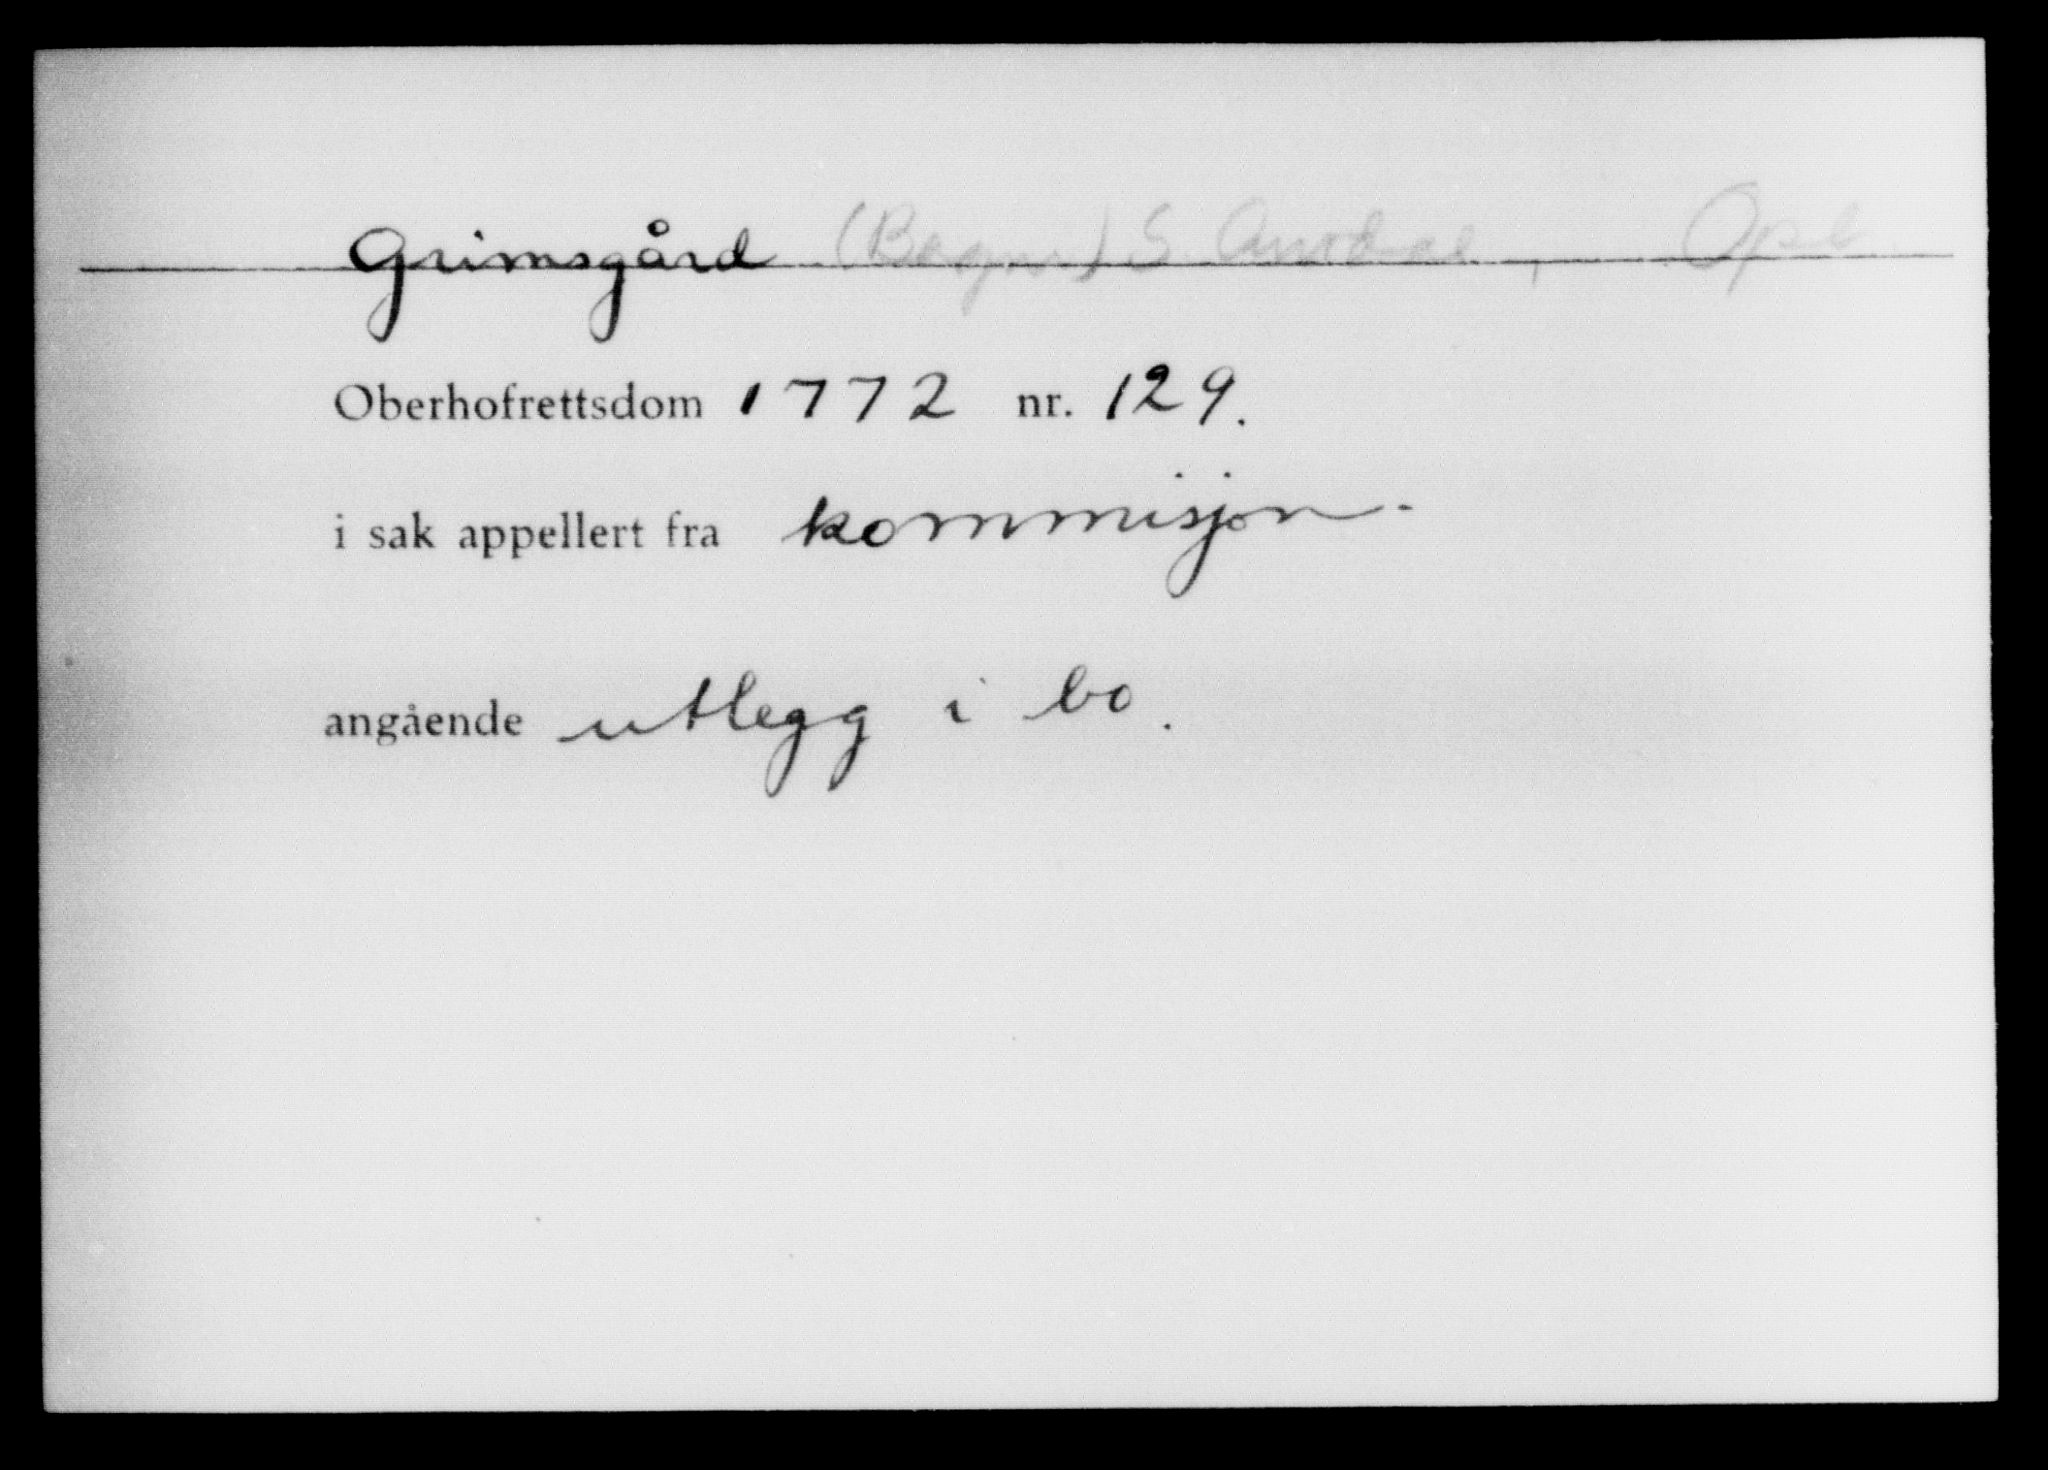 Grimsgård (Bagn) S Aurdal, Opl
Oberhofrettsdom 1772 nr. 129.
i sak appellert fra kommisjon.
angående utlegg i bo.